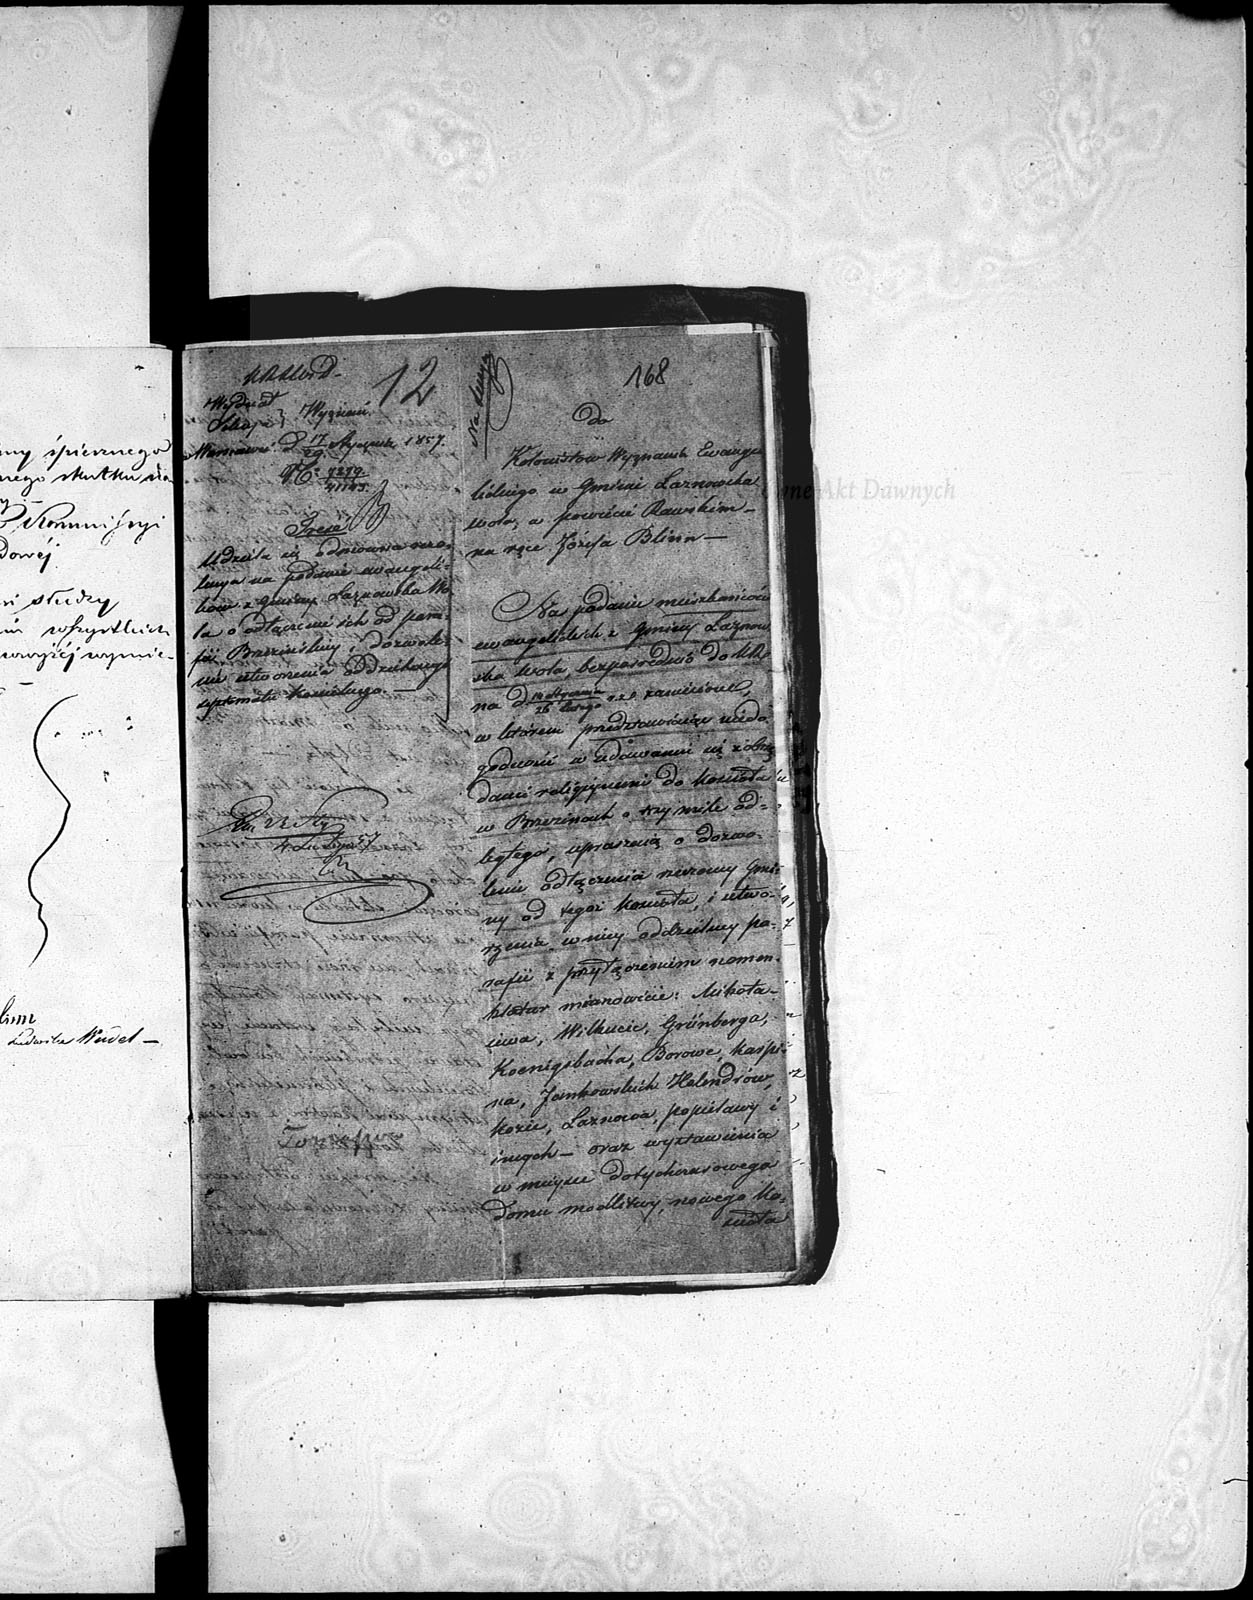 ny śpiesznego
nego skutku
Kommissyi
dowéj
służy
wszystkich
Ludwika Wudel —
12
168
Wydział
Sekcya } Wyznań.
Warszawa D. 17/29 Stycznia 1857.
Nr 7279/41145
Treść
Udziela się odmowna rezo-
lucya na podanie ewangeli-
ków z gminy Łaznowska Wo
la o odłączenie ich od para-
fii Brzezińskiej i dozwole-
nie utworzenia oddzielnego
systematu kościelnego. —
4 Lutego 57
Do
Kolonistów Wyznania Ewange
lickiego w Gminie Łaznowska
wola, w powiecie Rawskim —
na ręce Józefa Blinn —
Na podanie mieszkańców
ewangelickich z Gminy Łaznow
ska Wola, bezpośrednio do KR
na d. 14 Stycznia/26 Lutego zaniesione,
w którem przedstawiając niedo
godność w udawaniu się z obrzę
dami religijnemi do kościoła
w Brzezinach o trzy mile od-
ległego, upraszają o dozwo-
lenie odłączenia rzeczonej Gmi-
ny od tegoż kościoła, i utwo-
rzenia w niej oddzielnej pa-
rafii z przyłączeniem nomen-
klatur mianowicie: Mikoła-
jewa, Wilkucic, Grünberga,
Koenigsbacha, Borowe, Kaspi-
na, Jankowskich Holendrów,
Łaznowa, Popielawy i
innych — oraz wystawienia
w miejsce dotychczasowego
domu modlitwy, nowego ko-
ścioła